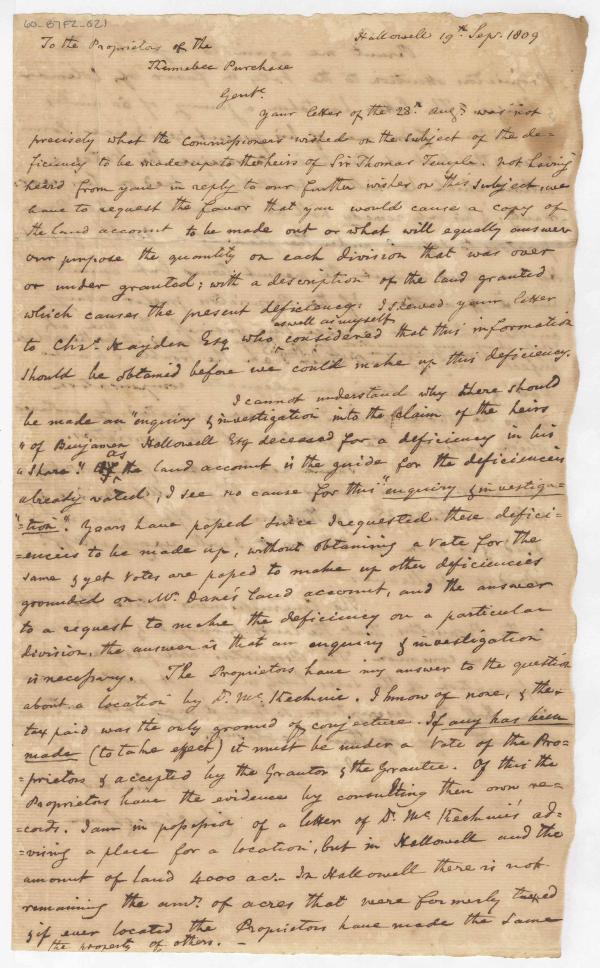 60-B7F2-021
Hallowell 19th Sepr 1809
To the Proprietors of the
Kennebec Purchase
Gentn
Your letter of the 28th Augt was not
precisely what the Commissioners wished on the subject of the de-
ficiency to be made up to the heirs of Sir Thomas Temple. not having
heard from you in reply to our further wishes on this subject, we
have to request the favor that you would cause a copy of
the land account to be made out or what will equally answer
our purpose the quantity on each division that was over
or under granted; with a description of the land granted
which causes the present deficiency: I shewed your letter
to Chas. Hayden Esq who aswell as myself considered that this information
should be obtained before we could make up this deficiency.
I cannot understand why there should
be made an "enquiry & investigation into the claim of the heirs
"of Benjamin Hallowell Esq deceased for a deficiency in his
"share." As the land account is the guide for the deficiencies
already voted; I see no cause for this "enquiry & investiga-
"=tion". Years have passed since I requested these defici-
=encies to be made up, without obtaining a vote for the
same & yet votes are passed to make up other deficiencies
grounded on Mr. Dane's land account, and the answer
to a request to make the deficiency on a particular
division, the answer is that an enquiry & investigation
is necessary. The Proprietors have my answer to the question
about a location by Dr. McKechnie. I know of none, & the
tax paid was the only ground of conjecture. If any has been
made (to take effect) it must be under a vote of the Pro-
=prietors & accepted by the Grantor & the Grantee. Of this the
Proprietors have the evidence by consulting their own re-
=cords. I am in possession of a letter of Dr. McKechnie's ad-
=vising a place for a location, but in Hallowell and the
amount of land 4000 acs. In Hallowell there is not
remaining the amt. of acres that were formerly taxed
& if ever located the Proprietors have made the same
the property of others. –